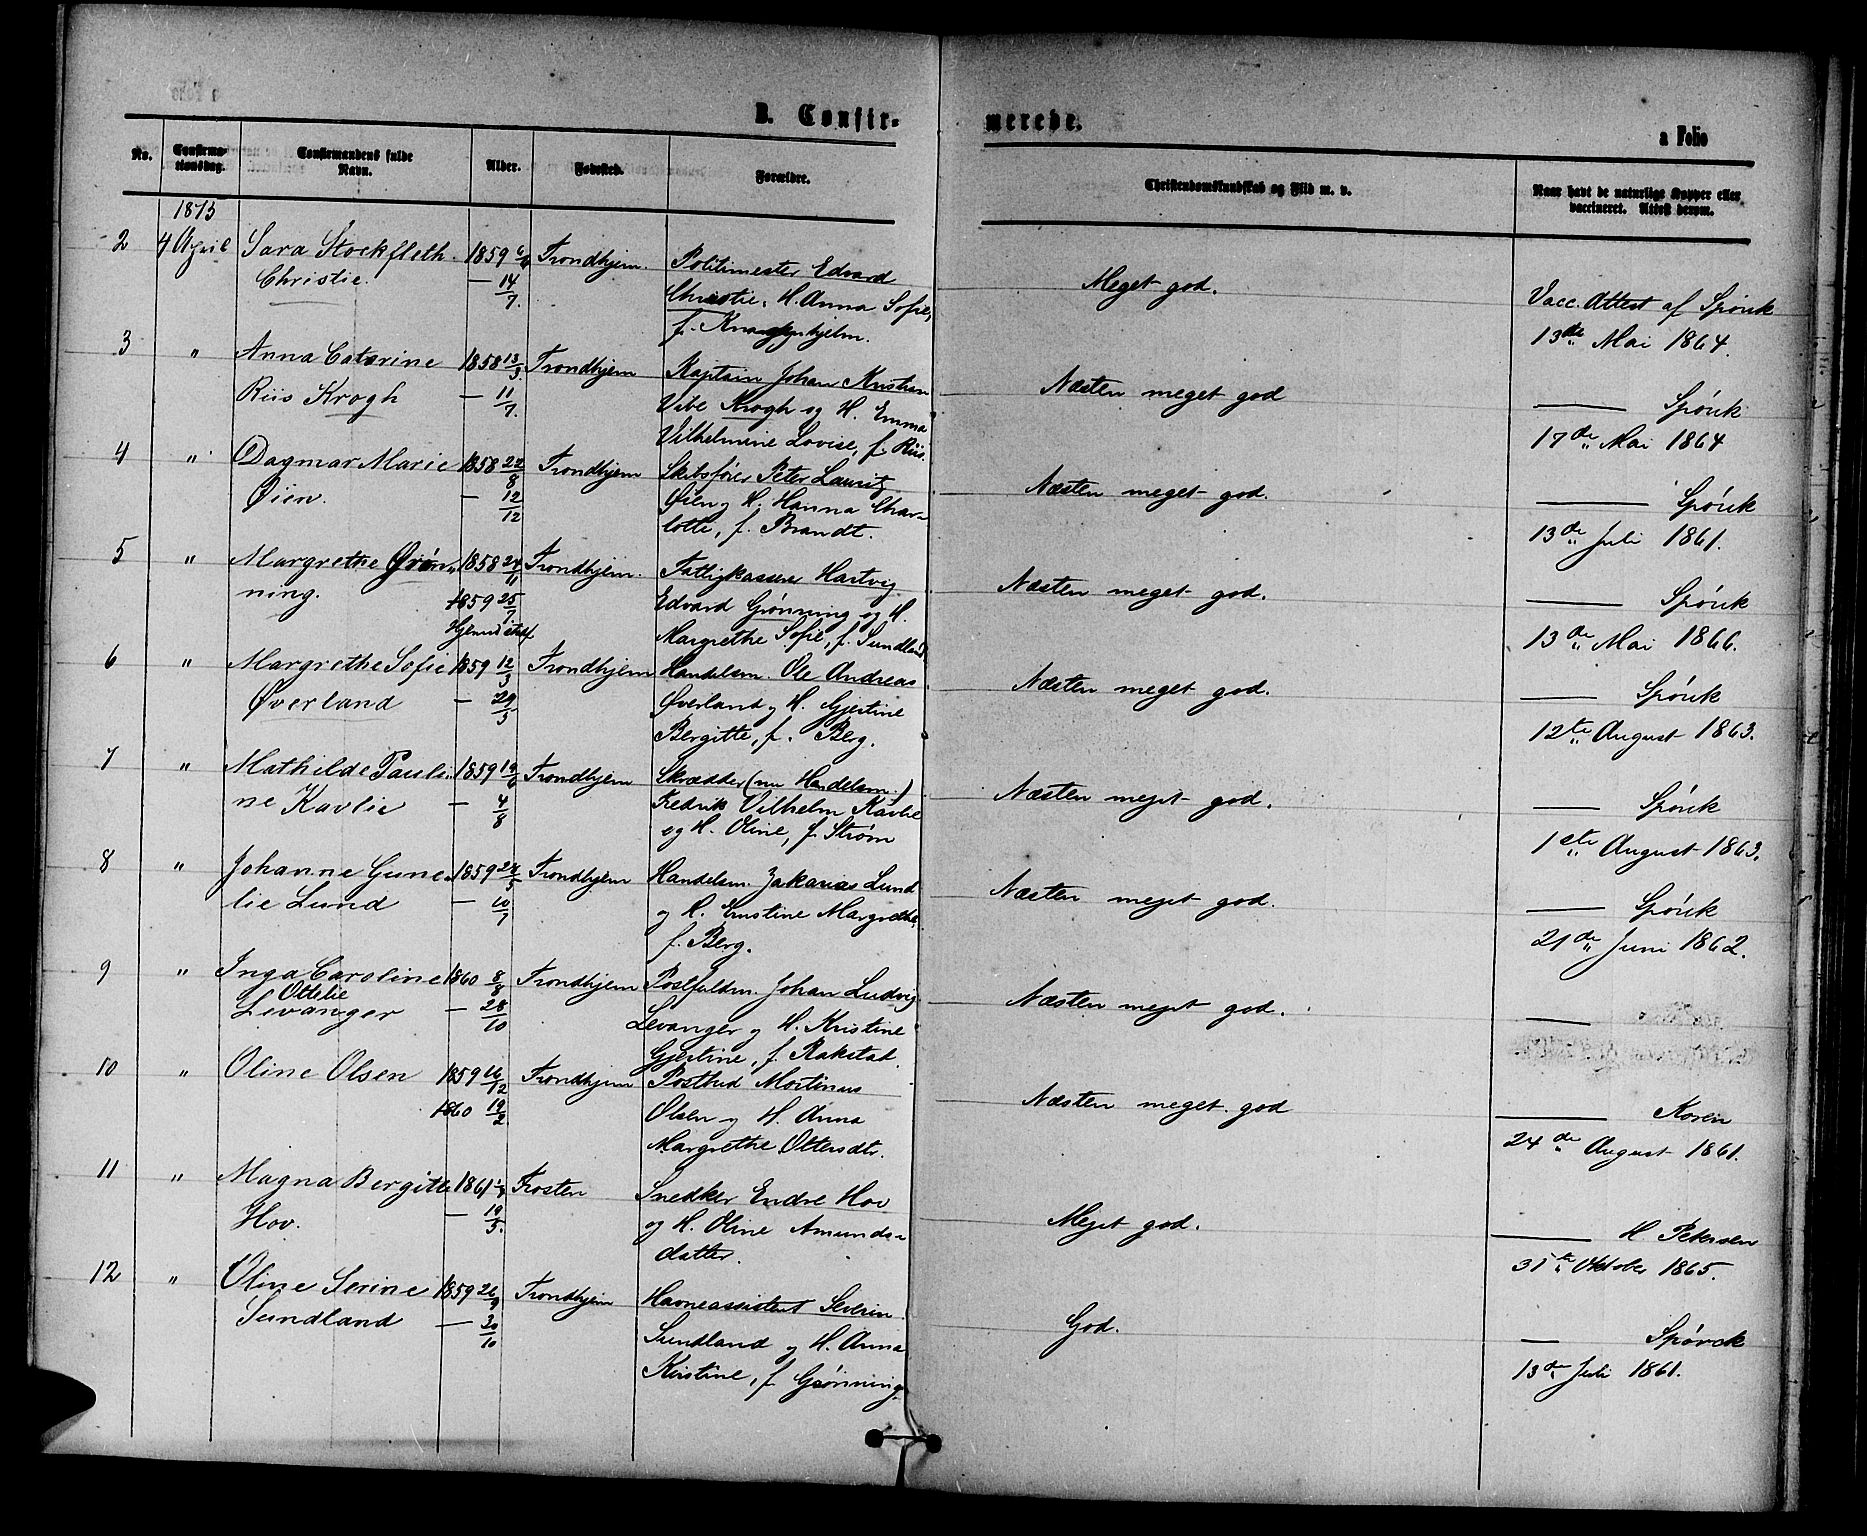 B. Confir-
merede.
a Folio
No.
Confirma-
tionsdag.
Confirmandens fulde
Navn.
Alder.
Fødested.
Forældre.
Christendomskundskab og Flid m. v.
Naar havt de naturlige Kopper eller
vaccineret. Attest derom.
1875
2 4 April Sara Stockfleth 1859 Trondhjem. Politimester Edvard
Christie. — 14/7. Christie, H. Anna Sofie,
f. Knagenhjelm.
Meget god.
Vacc. Attest af Spörck
13de Mai 1864.
3 " Anna Catarine 1858 13/3. Trondhjem Kaptain Johan Kristian
Riis Krogh — 11/7. Vibe Krogh og H. Emma
Vilhelmine Lovise, f. Riis.
Næsten meget god
— Spörck
17de Mai 1864
4 " Dagmar Marie 1858 22/8 Trondhjem Skibsfører Peter Lauritz
Øien. — 12/12 Øien og H. Hanna Char-
lotte, f. Brandt.
Næsten meget god.
— Spörck
13de Juli 1861.
5 " Margrethe Grön- 1858 24/11 Trondhjem. Fattigkasserer Hartvig
ning. 1859 25/7 Edvard Grønning og H.
Hjemmedøbt Margrethe Sofie, f. Sundland
Næsten meget god.
— Spörck
13de Mai 1866.
6 " Margrethe Sofie 1859 12/3 Trondhjem Handelsm. Ole Andreas
Øverland — 29/5 Øverland og H. Gjertine
Bergitte, f. Berg.
Næsten meget god.
— Spörck
12te August 1863.
7 " Mathilde Pauli- 1859 19/6 Trondhjem Skrædder (nu Handelsm.)
ne Kavlie — 4/8 Fredrik Vilhelm Kavlie
og H. Oline, f. Strøm
Næsten meget god.
— Spörck
1ste August 1863.
8 " Johanne Gune- 1859 24/5 Trondhjem Handelsm. Zakarias Lund
lie Lund — 10/7 og H. Ernstine Margrethe,
f. Berg.
Næsten meget god.
— Spörck
21de Juni 1862.
9 " Inga Caroline 1860 8/8 Trondhjem Postfuldm. Johan Ludvig
Ottelie
Levanger — 28/10 Levanger og H. Kristine
Gjertine, f. Rakstad.
Næsten meget god.
—
10 " Oline Olsen 1859 16/12 Trondhjem Postbud Mortinus
1860 19/2 Olsen og H. Anna
Margrethe Ottersdtr.
Næsten meget god
— Koren
24de August 1861.
11 " Magna Bergitte 1861 Frosten Snedker Endre Hov
Hov. — 19/5. og H. Oline Amunds-
datter.
Meget god.
— H Petersen
31te Oktober 1865.
12 " Oline Serine 1859 26/9 Trondhjem Havneassistent Severin
Sundland — 30/10 Sundland og H. Anna
Kirstine, f. Grønning
God.
— Spörck
13de Juli 1861.